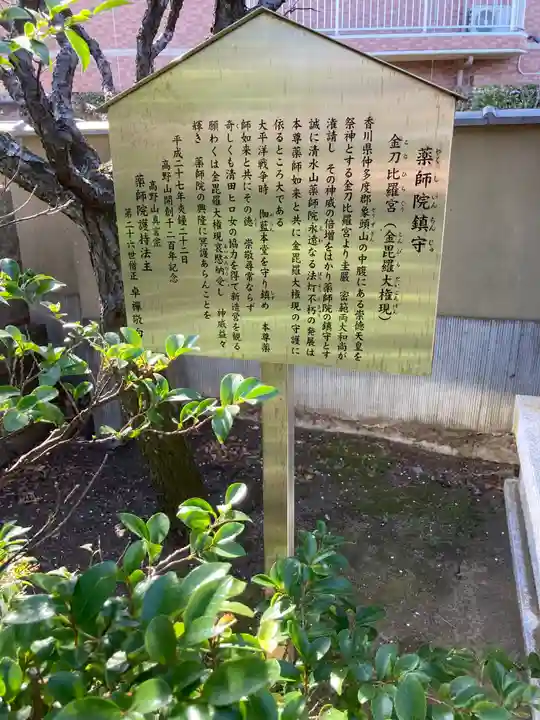 薬師院鎮守
金刀比羅宮(金毘羅大権現)
香川県仲多度郡象頭山の中腹にある崇徳天皇を
祭神とする金刀比羅宮より圭厳 密範両大和尚が
潅請し その神威の倍増をはかり薬師院の鎮守とす
誠に清水山薬師院永遠なる法灯不朽の発展は
本尊薬師如来と共に金毘羅大権現の守護に
依るところ大である
大平洋戦争時 伽藍本堂を守り鎮め 本尊薬
師如来と共にその徳 崇敬尋常ならず
奇しくも清田ヒロ女の協力を得て新造営を観る
願わくは金毘羅大権現哀愍納受し 神威益々
輝き 薬師院の興隆に冥護あらんことを
平成二十七年炎暑二十二日
高野山開創千二百年記念
高野山真言宗
薬師院護持法主
第二十六世僧正 卓禪敬